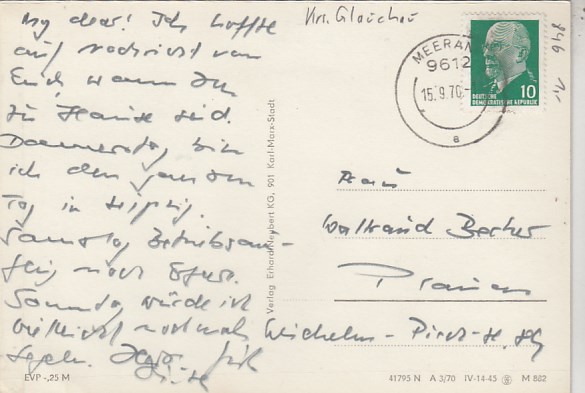 My dear! Ich hoffte
auf Nachricht von
Euch, wann Ihr
zu Hause seid.
Donnerstag bin
ich den ganzen
Tag in Leipzig.
Samstag Betriebsaus-
flug nach Erfurt.
Sonntag würde ich
vielleicht nochmals
segeln.
Krs. Glauchau
MEERANE
9612
15.9.70
a
10
DEUTSCHE
DEMOKRATISCHE REPUBLIK
Frau
Waltraud Becher
Plauen
Wilhelm-Pieck-
Verlag Erhard Neubert KG, 901 Karl-Marx-Stadt
EVP -,25 M
41795 N A 3/70 IV-14-45 M 882